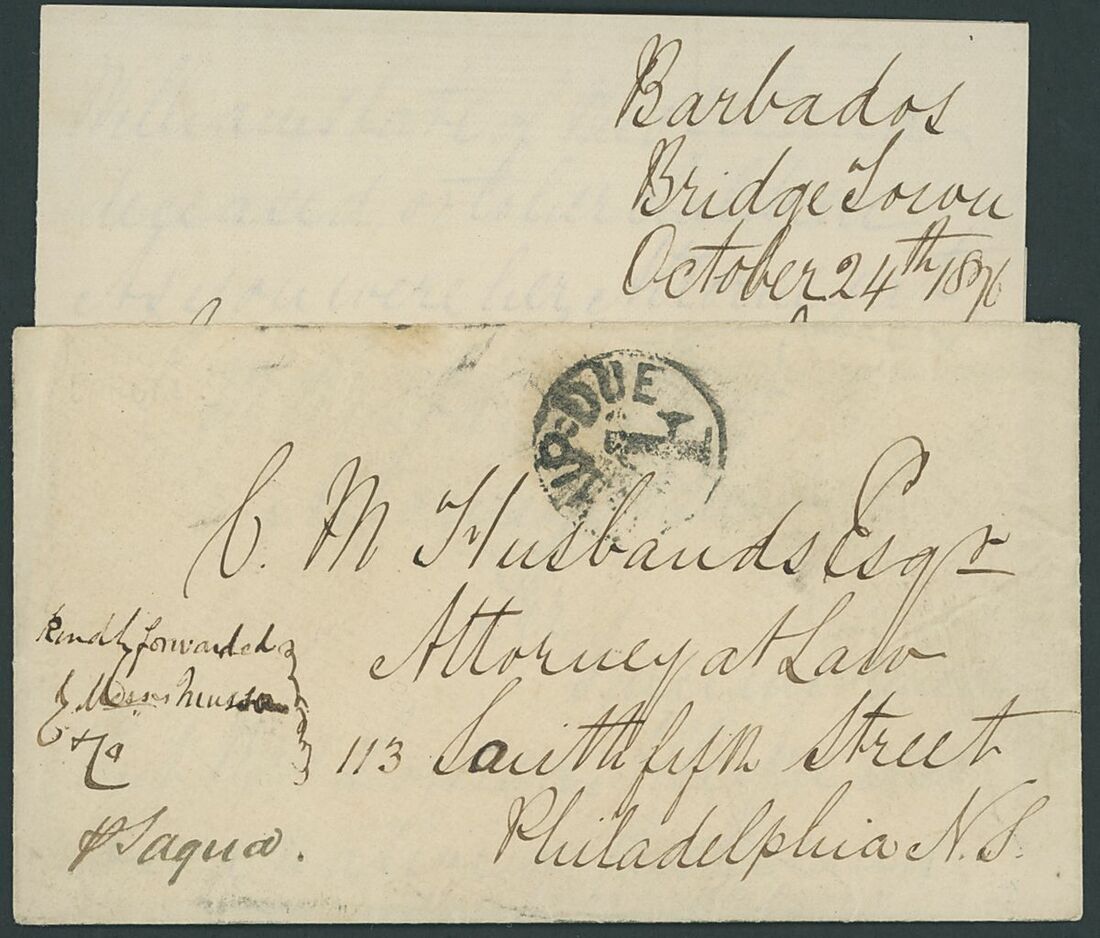 Barbados
Bridge Town
October 24th 1876
DUE
C. M. Husbands Esqr
Attorney at Law
113 South fifth Street
Philadelphia N. S.
Kindly forwarded
Saqua.